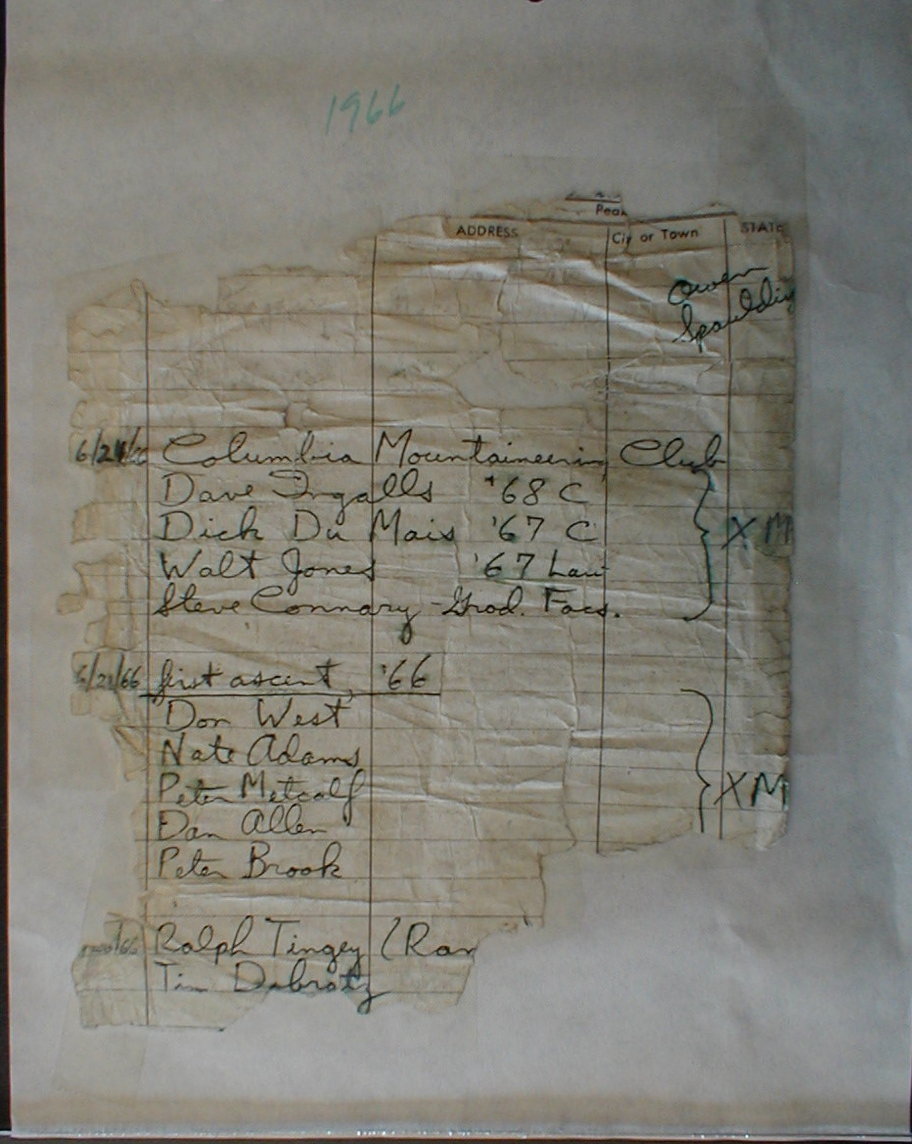 1966
Peak
ADDRESS City or Town STATE
Owen
Spaulding
Columbia Mountaineering Club
Dave Ingalls '68 C
Dick Du Mais '67 C XM
Walt Jones '67 Law
Steve Connary - Grad. Facs.
6/21/66 first ascent, '66
Don West
Nate Adams
Peter Metcalf XM
Dan Allen
Peter Brook
Ralph Tingey (Ran
Tim